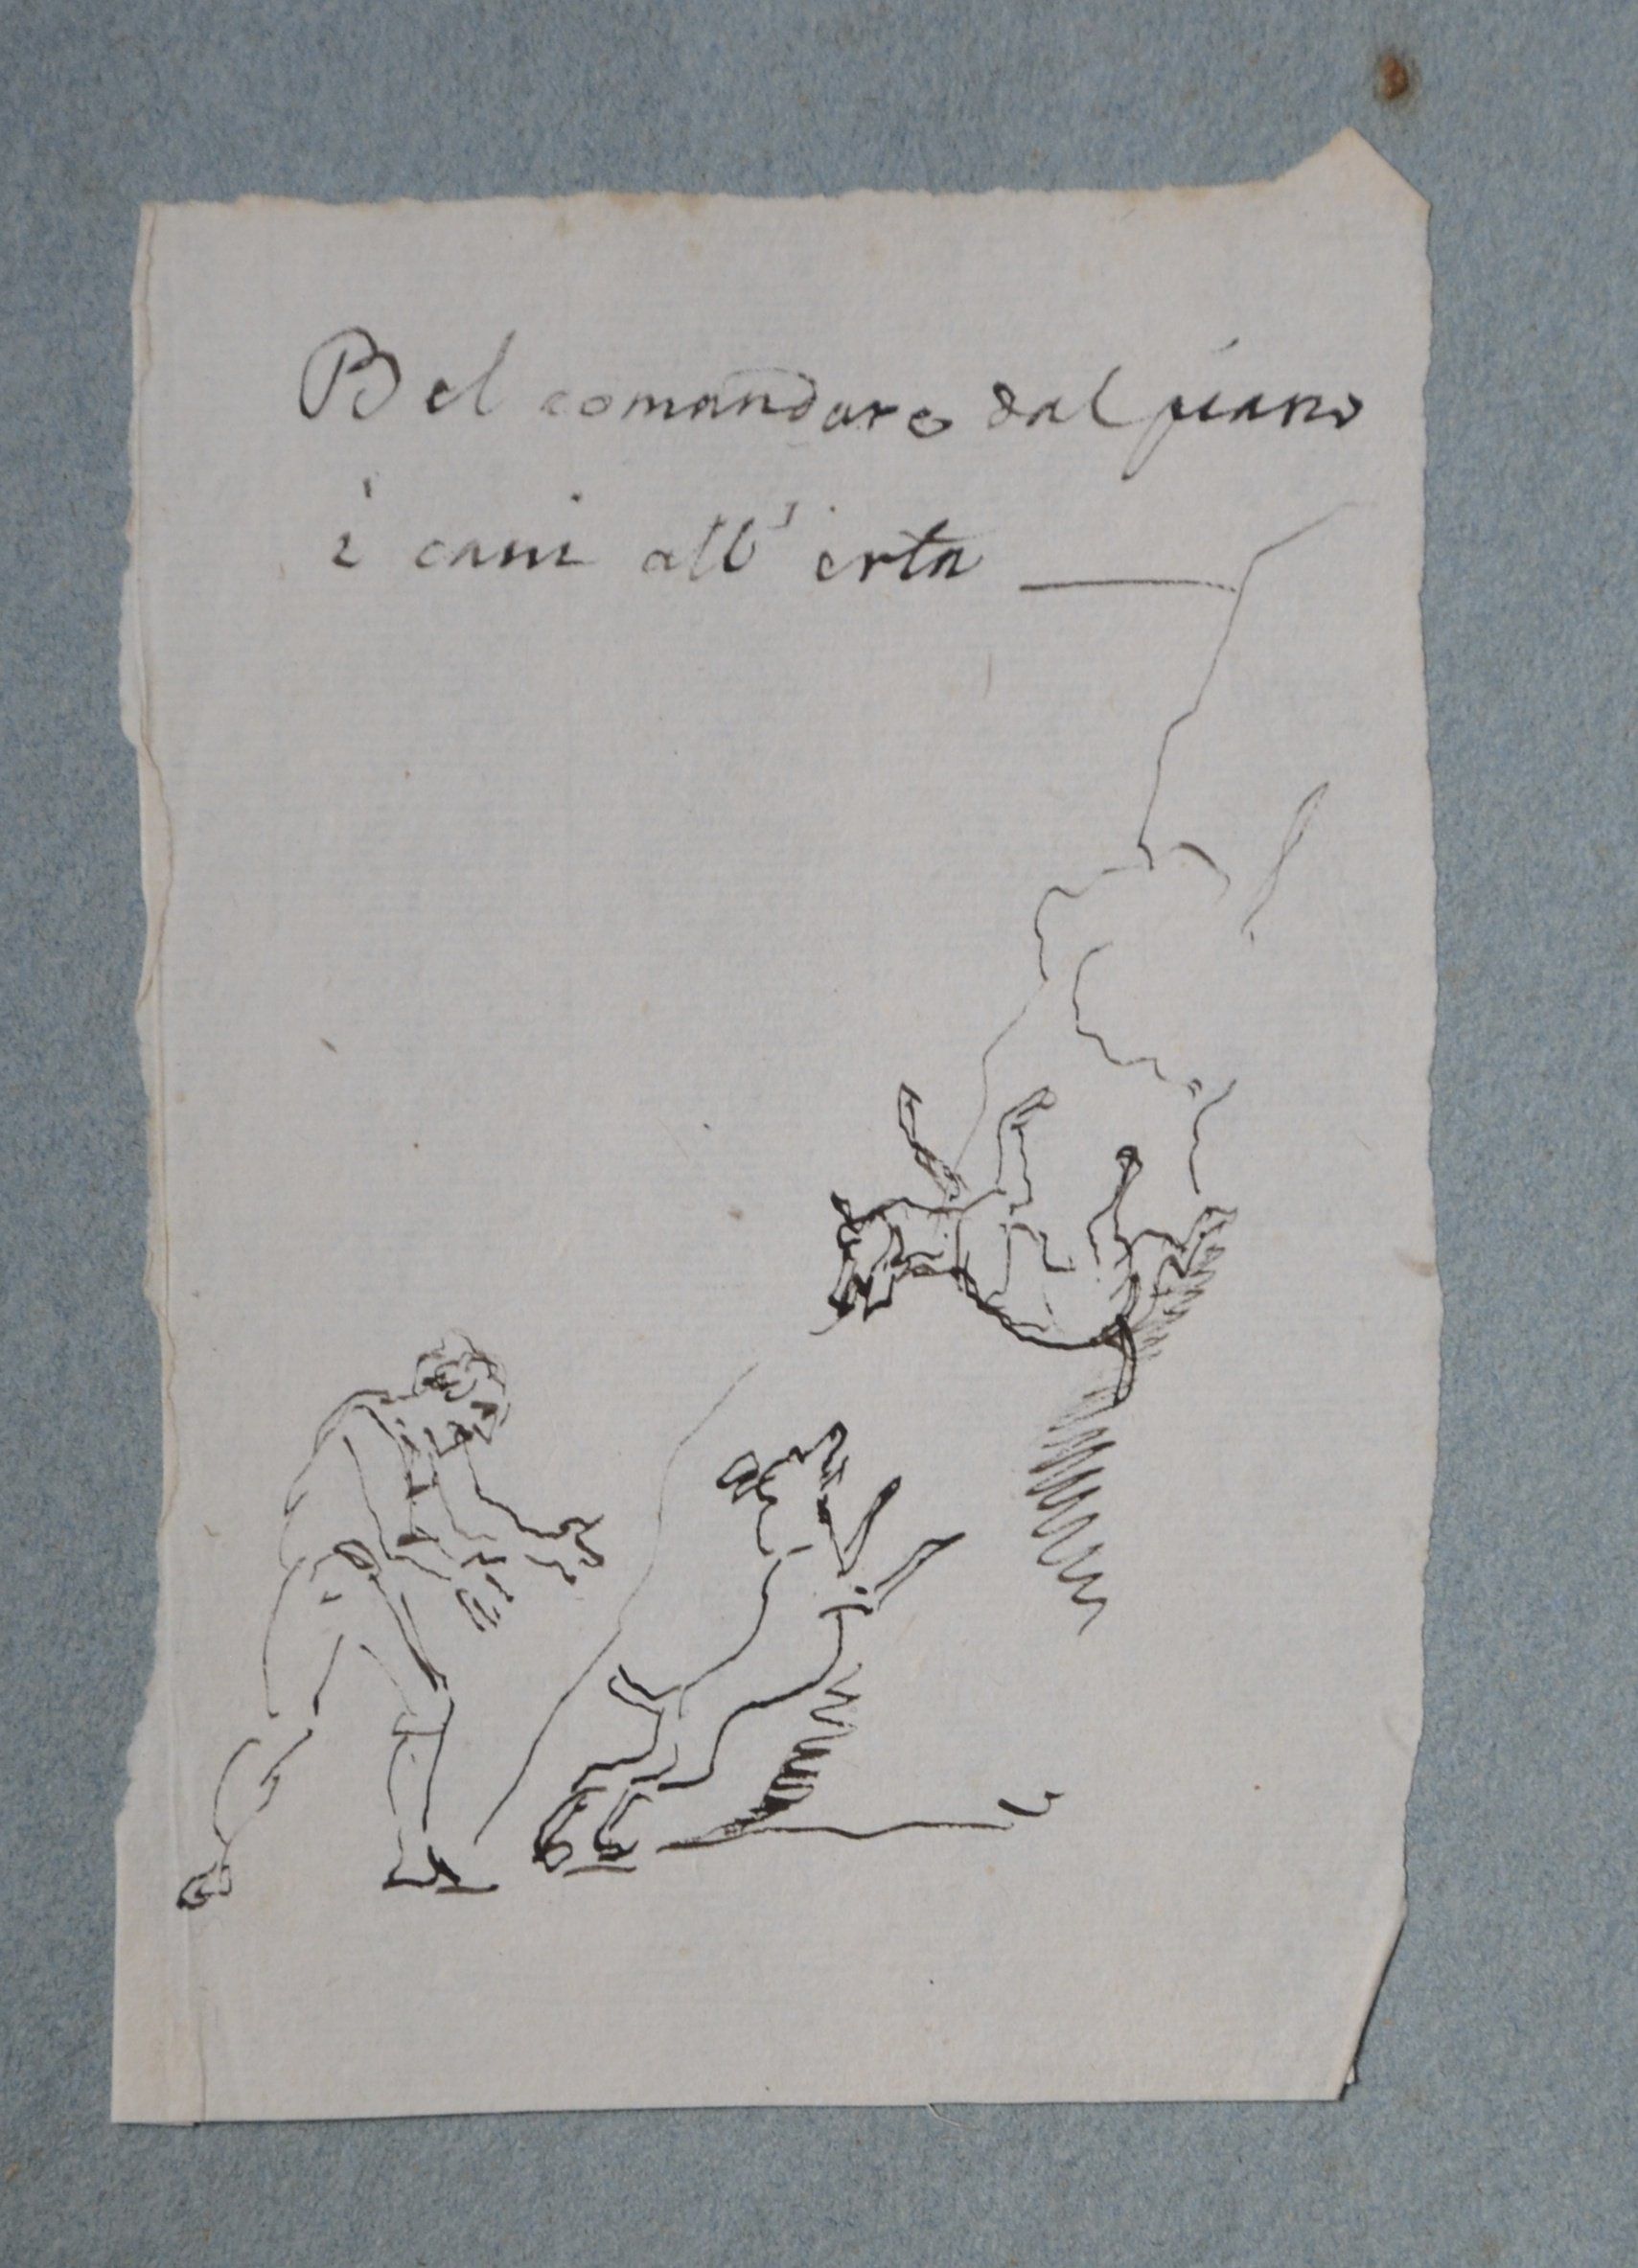 Bel comandare dal piano
i cani all' erta